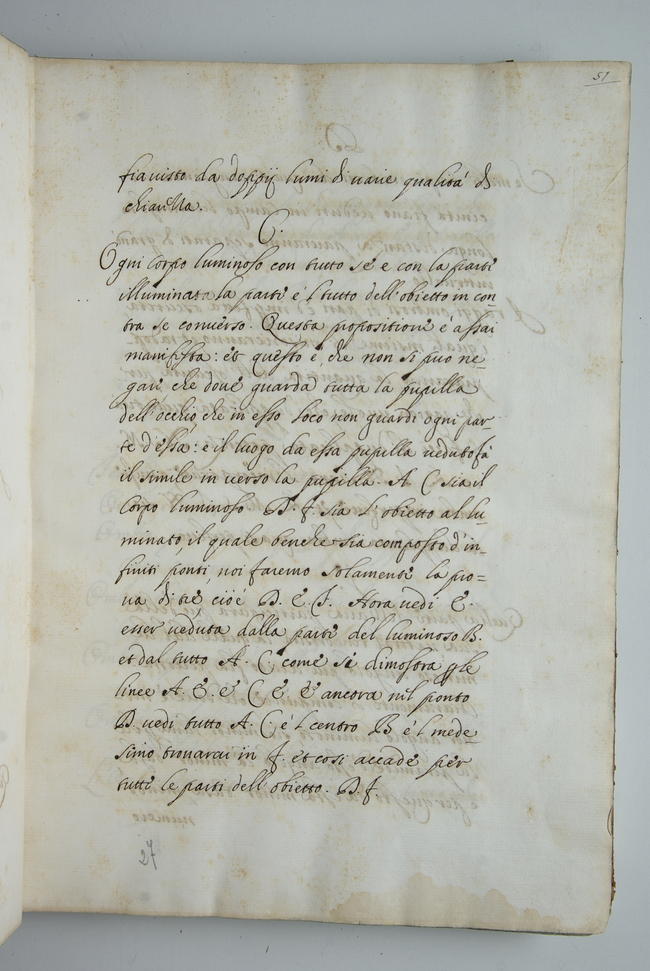 51
sia visto da doppij lumi di varie qualità di
chiarezza.
C.
Ogni corpo luminoso con tutto se e con la parte
illuminata la parte e 'l tutto dell'obietto in con
tra se converso. Questa propositione è assai
manifesta: et questo è che non si puo ne-
gare che dove guarda tutta la pupilla
dell'occhio, che in esso loco non guardi ogni par-
te d'essa: e il luogo da essa pupilla veduto fà
il simile in verso la pupilla. A C. sia il
Corpo luminoso. D. f. sia l'obietto al lu-
minato, il quale benche sia composto d'in-
finiti ponti, noi faremo solamente la pro=
va di tre cioè D. E. F. Hora vedi E.
esser veduta dalla parte del luminoso B.
et dal tutto A. C. come si dimostra per le
linee A. E. e C. E. E ancora nil ponto
D. vedi tutto A. C. e 'l centro B e 'l mede-
simo trovarai in f. et cosi accade per
tutte le parti dell'obietto. D. f
27